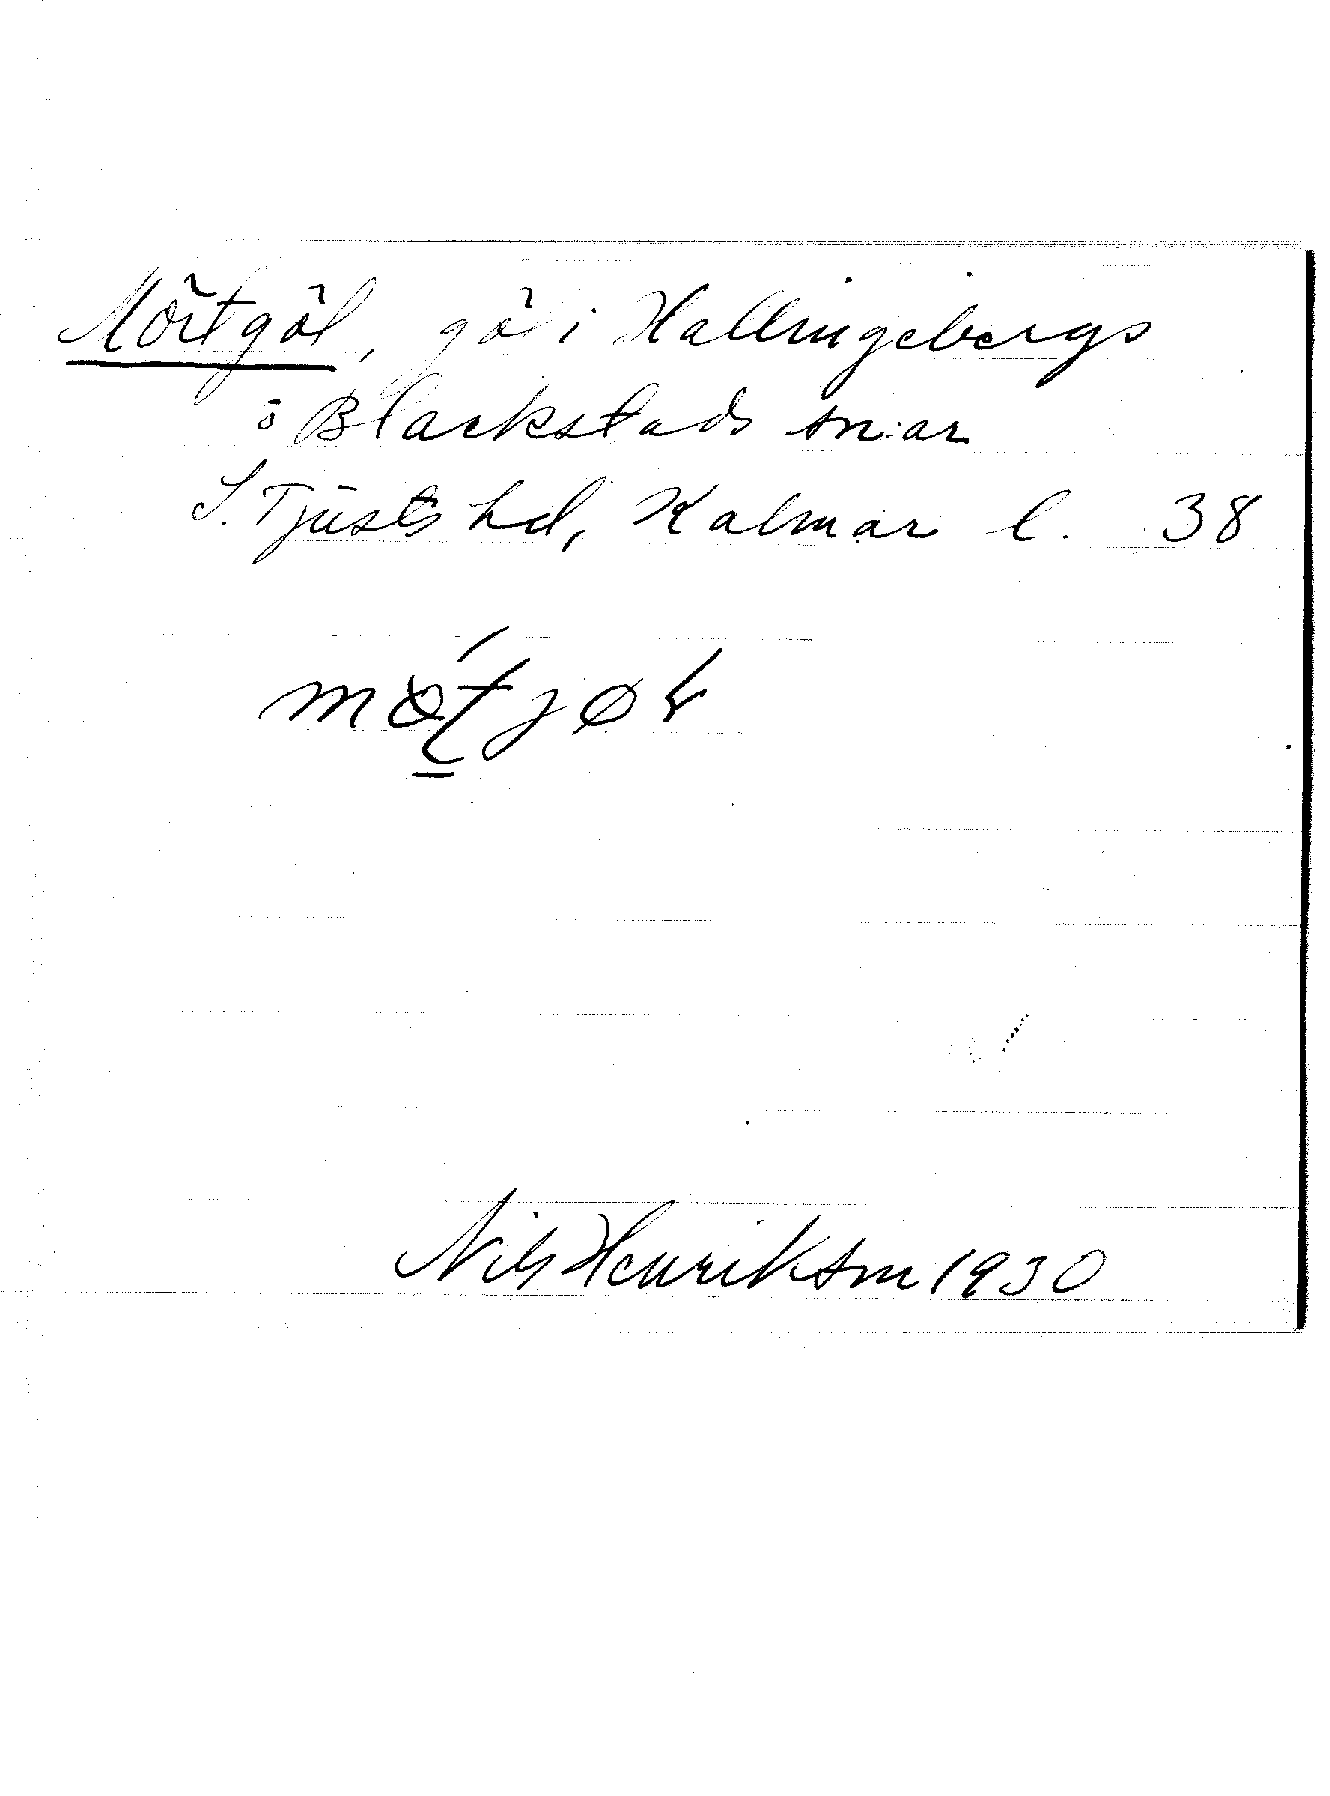 Mörtgöl, göl i Hallingebergs
o Blackstads sn:ar
S. Tjusts hd, Kalmar l. 38
Nils Henrikson 1930